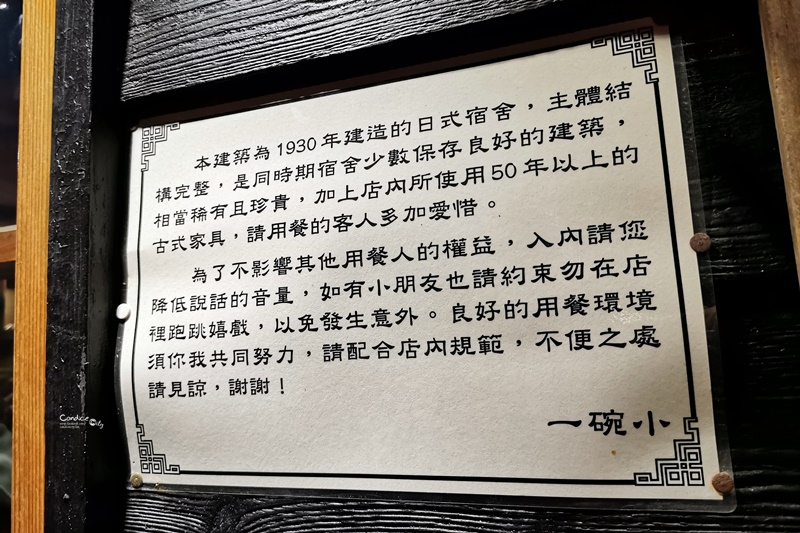 本建築為1930年建造的日式宿舍，主體結
構完整，是同時期宿舍少數保存良好的建築，
相當稀有且珍貴，加上店內所使用50年以上的
古式家具，請用餐的客人多加愛惜。
為了不影響其他用餐人的權益，入內請您
降低說話的音量，如有小朋友也請約束勿在店
裡跑跳嬉戲，以免發生意外。良好的用餐環境
須你我共同努力，請配合店內規範，不便之處
請見諒，謝謝！
一碗小